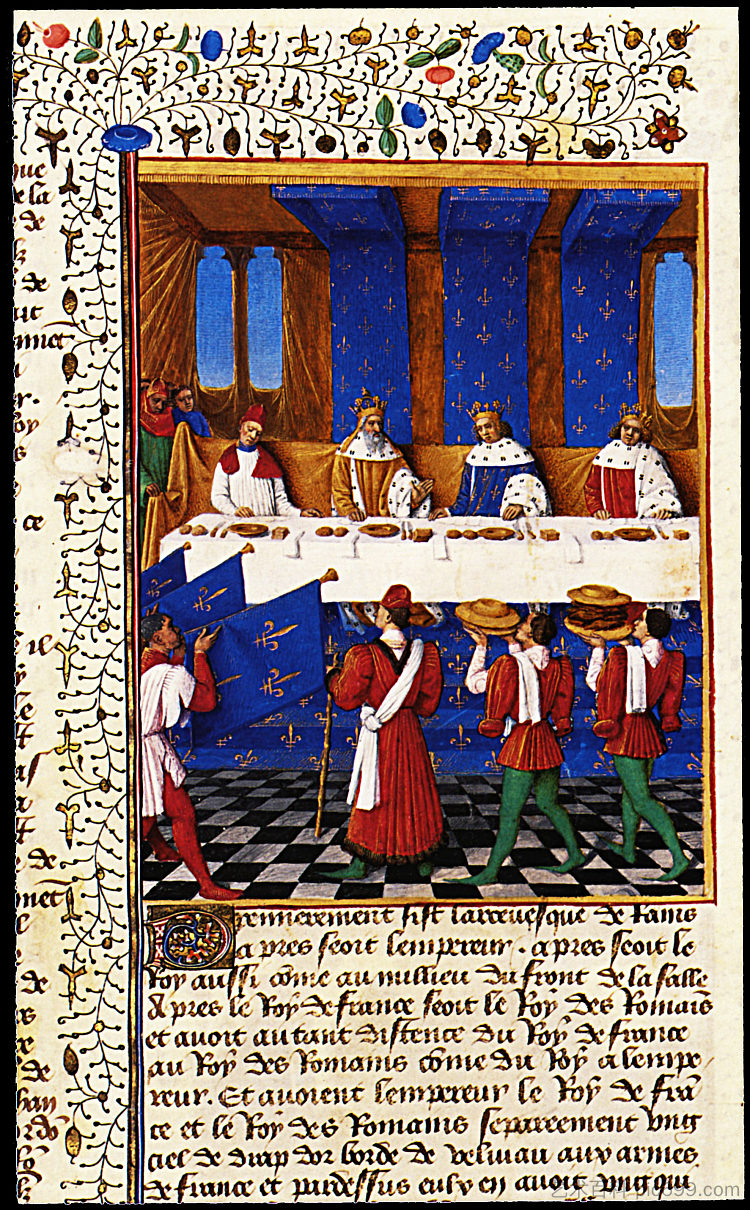 ue
de la
de
de
ait
de
ce
il
de
de
de
Premierement sist larcevesque de Rains
apres seoit lempereur. apres seoit le
Roy aussi cōme au millieu du front de la salle
Apres le Roy de france seoit le Roy des Romaīs
et avoit autant distence du Roy de france
au Roy des Romains cōme du Roy a lempe
reur. Et avoient lempereur le Roy de frā
ce et le Roy des Romains separeement vng
ciel de drap dor borde de veluiau aux armes
de france et pardessus eulx en avoit vng qui
艺术百科 pic699.com